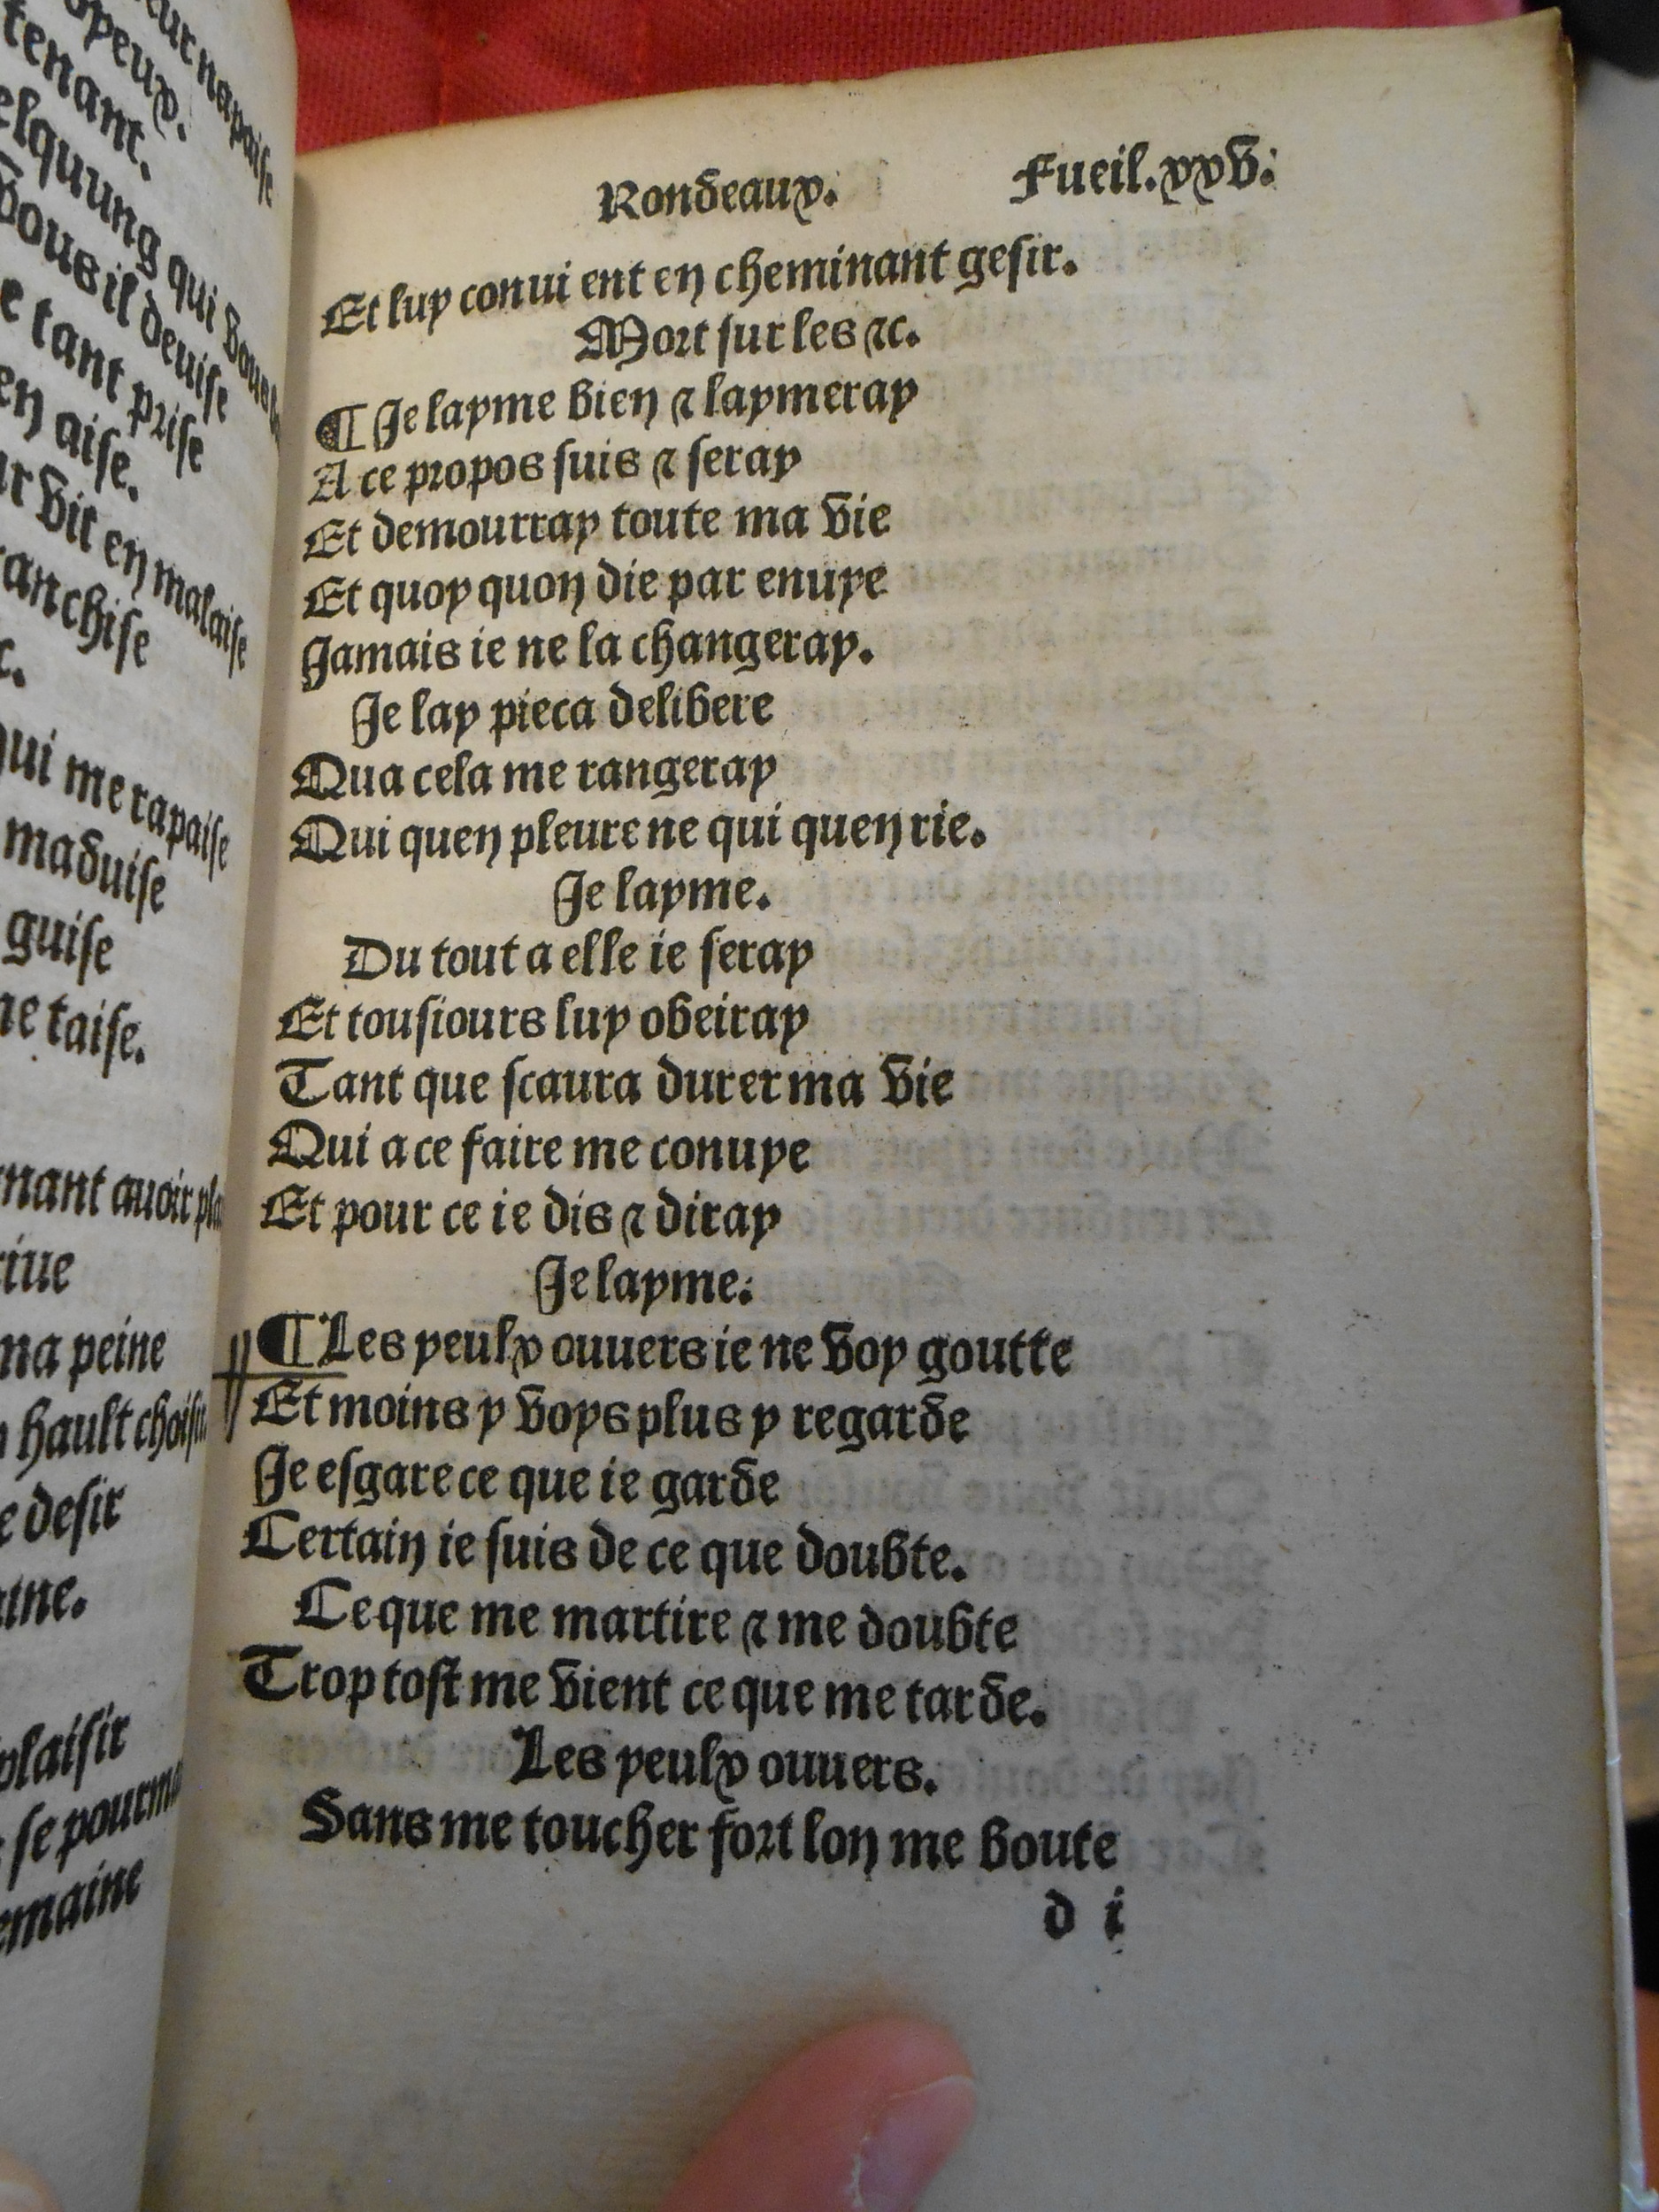 tenant.
opeux.
elquung qui
vous il deuise
e tant prise
en aise.
ur vit en malaise
anchise
c.
qui me rapaise
maduise
guise
ne taise.
nant auoir
riue
ma peine
hault
e desir
aine.
plaisir
se
emaine
Rondeaux. Fueil.xxv.
Et luy conui ent en cheminant gesir.
Mort sur les ⁊c.
¶ Je layme bien ⁊ laymeray
A ce propos suis ⁊ seray
Et demourray toute ma vie
Et quoy quon die par enuye
Jamais ie ne la changeray.
Je lay pieca delibere
Qua cela me rangeray
Qui quen pleure ne qui quen rie.
Je layme.
Du tout a elle ie seray
Et tousiours luy obeiray
Tant que scaura durer ma vie
Qui a ce faire me conuye
Et pour ce ie dis ⁊ diray
Je layme.
¶ Les yeulx ouuers ie ne voy goutte
Et moins y voys plus y regarde
Je esgare ce que ie garde
Certain ie suis de ce que doubte.
Ce que me martire ⁊ me doubte
Trop tost me vient ce que me tarde.
Les yeulx ouuers.
Sans me toucher fort lon me boute
d i